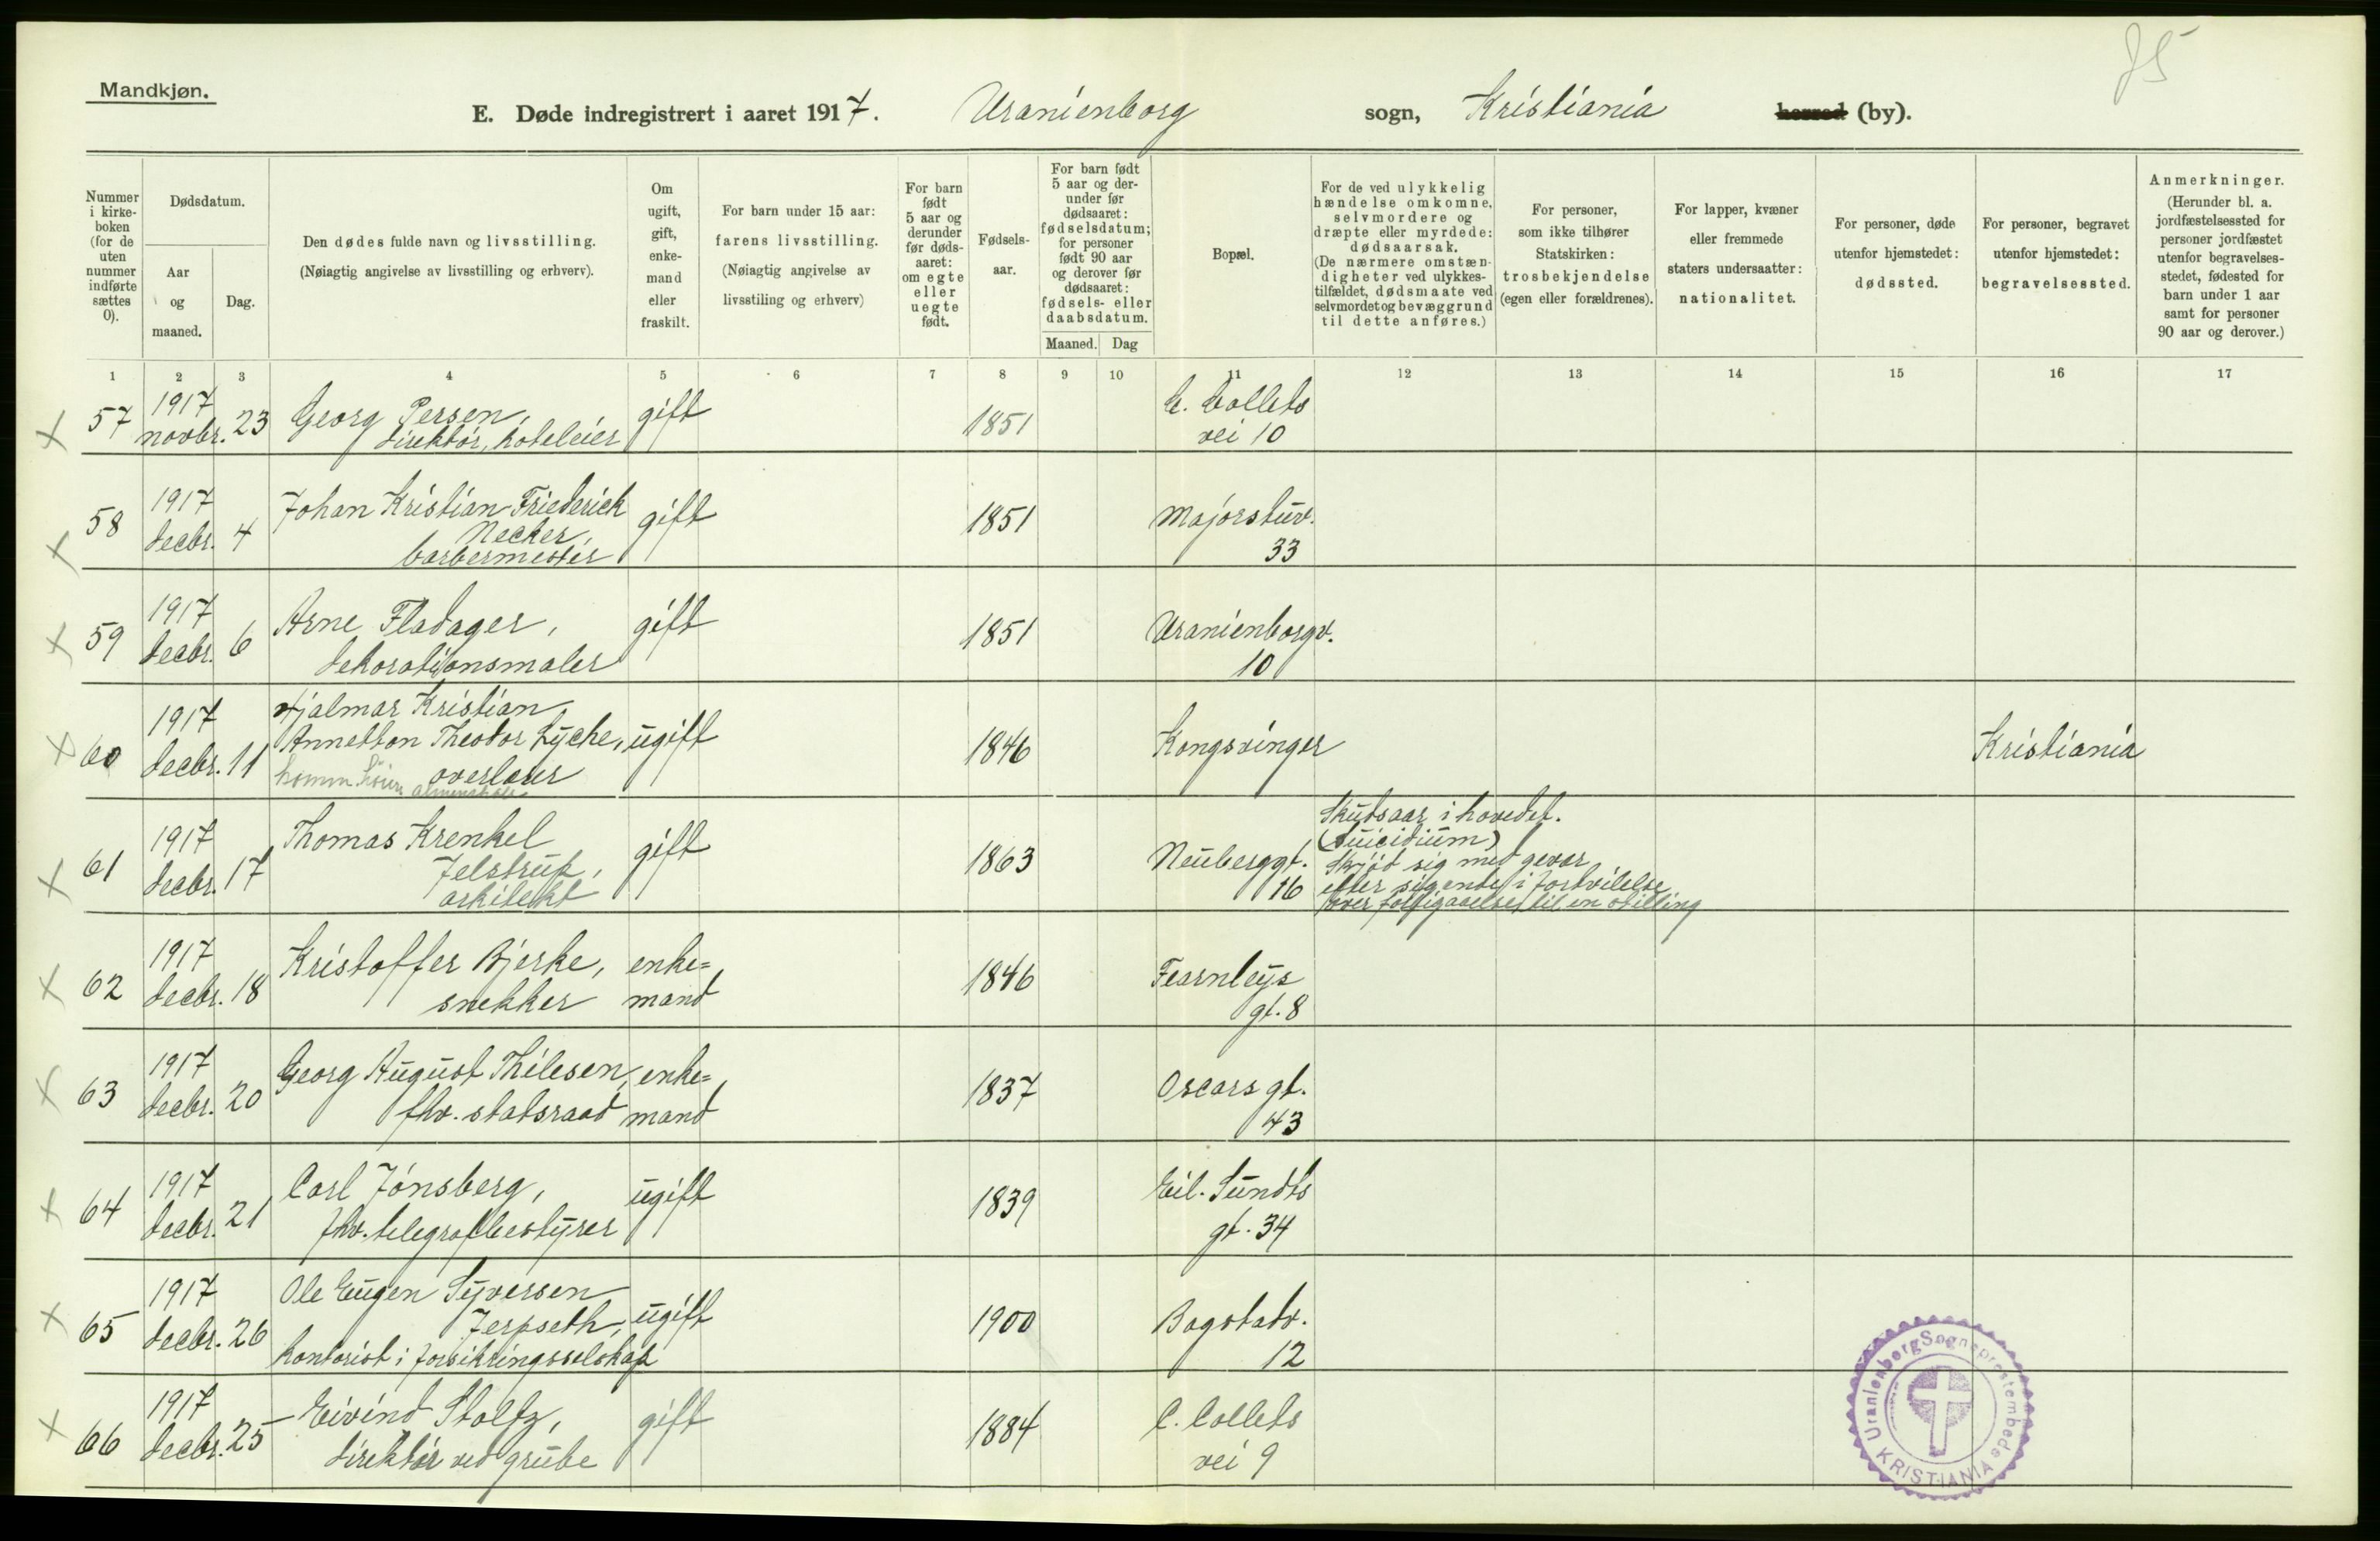 Mandkjøn.
E. Døde indregistrert i aaret 1917. Uranienborg sogn, Kristiania herred (by).
Nummer i kirkeboken (for de uten nummer indførte sættes 0).
Dødsdatum.
Aar og maaned.
Dag.
Den dødes fulde navn og livsstilling.
(Nøiagtig angivelse av livsstilling og erhverv).
Om ugift, gift, enkemand eller fraskilt.
For barn under 15 aar: farens livsstilling.
(Nøiagtig angivelse av livsstiling og erhverv)
For barn født 5 aar og derunder før dødsaaret: om egte eller uegte født.
Fødselsaar.
For barn født 5 aar og derunder før dødsaaret: fødselsdatum; for personer født 90 aar og derover før dødsaaret: fødsels- eller daabsdatum.
Maaned. Dag
Bopæl.
For de ved ulykkelig hændelse omkomne, selvmordere og dræpte eller myrdede: dødsaarsak.
(De nærmere omstændigheter ved ulykkestilfældet, dødsmaate ved selvmordet og bevæggrund til dette anføres.)
For personer, som ikke tilhører Statskirken: trosbekjendelse (egen eller forældrenes).
For lapper, kvæner eller fremmede staters undersaatter: nationalitet.
For personer, døde utenfor hjemstedet: dødssted.
For personer, begravet utenfor hjemstedet: begravelsessted.
Anmerkninger.
(Herunder bl. a. jordfæstelsessted for personer jordfæstet utenfor begravelsesstedet, fødested for barn under 1 aar samt for personer 90 aar og derover.)
1 2 3 4 5 6 7 8 9 10 11 12 13 14 15 16 17
57 1917 novbr. 23 Georg Persen, gift 1851 C. Collets
direktör, hoteleier vei 10
58 1917 decbr. 4 Johan Kristian Friederich gift 1851 Majorstuv.
Necker, 33
barbermester
59 1917 decbr. 6 Arne Fladager, gift 1851 Uranienborgv.
dekorationsmaler 10
60 1917 decbr. 11 Hjalmar Kristian
Annetton Theodor Lyche, ugift 1846 Kongsvinger Kristiania
overlærer
61 1917 decbr. 17 Thomas Krenkel gift 1863 Neuberggt. Skudsaar i hovedet.
Jelstrup, 16 (Suicidium)
arkitekt Skjöd sig med gevær
efter sigende i fortvilelse
over forbigaaelse til en stilling
62 1917 decbr. 18 Kristoffer Bjerke, enke= 1846 Fearnleys
snekker mand gt. 8
63 1917 decbr. 20 Georg August Thilesen, enke= 1837 Oscars gt.
fhv. statsraad mand 43
64 1917 decbr. 21 Carl Jönsberg, ugift 1839 Eil. Sundts
fhv. telegrafbestyrer gt. 34
65 1917 decbr. 26 Ole Eugen Syversen
Jerpseth, ugift 1900 Bogstadv.
kontorist i forsikringsselskap 12
66 1917 decbr. 25 Eivind Stoltz, gift 1884 C. Collets
direktör ved grube vei 9
Uranienborg Sogneprestembede KRISTIANIA